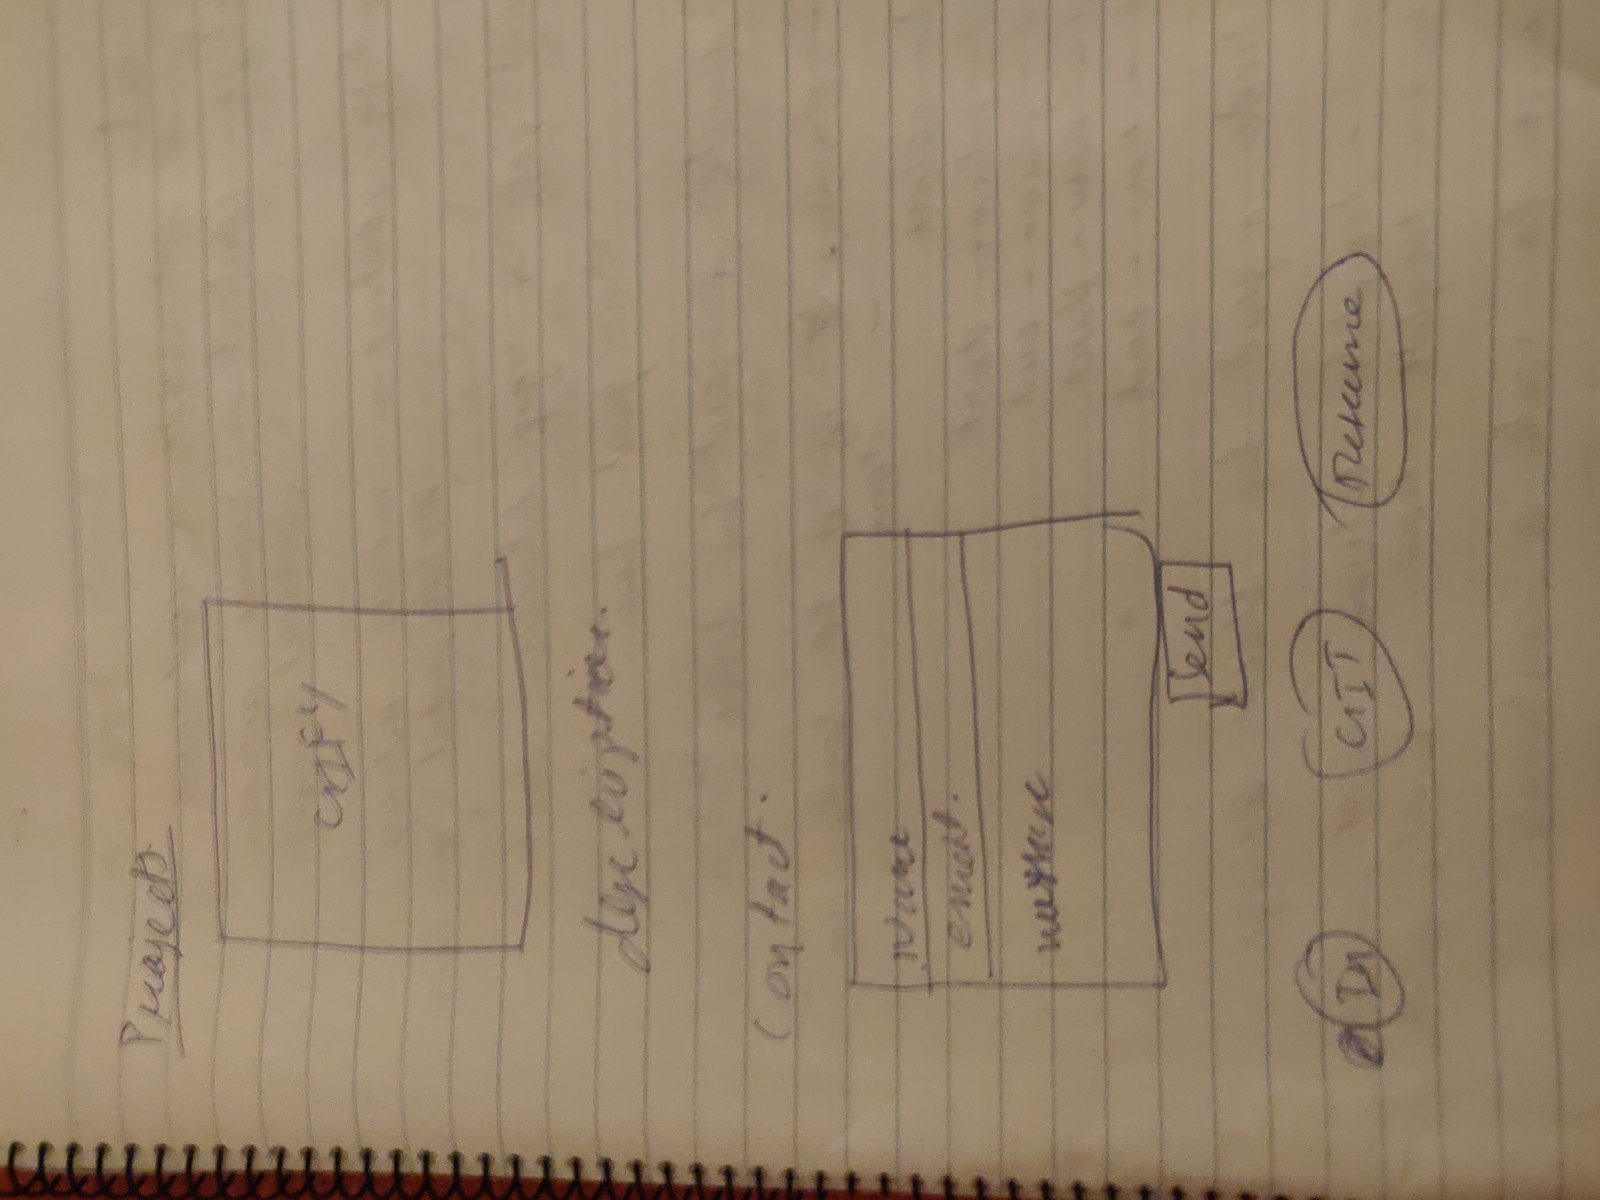 Projects
description.
Contact.
name
email.
message
Send
In
GIT
Resume